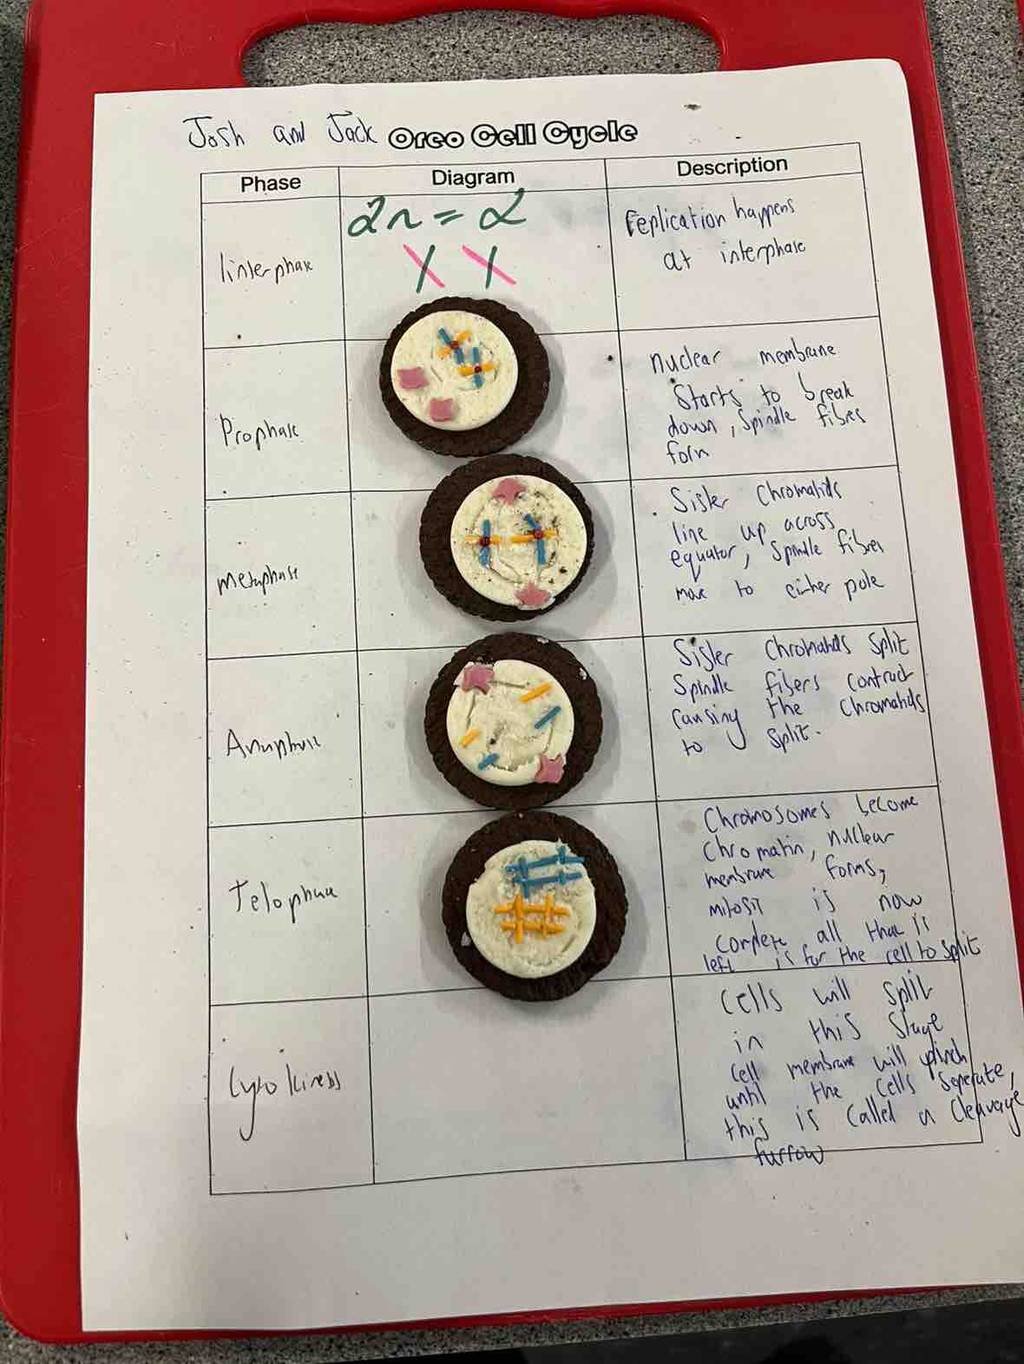 Josh and Jack Oreo Cell Cycle
Phase
Diagram
Description
Iinterphase
2n = 2
Replication happens
at interphase
Prophase
nuclear membrane
Starts to break
down, Spindle fibres
form
metaphase
Sister Chromatids
line up across
equator, Spindle fibres
move to either pole
Anaphase
Sister Chromatids Split
Spindle fibers contract
causing the chromatids
to split.
Telophase
Chromosomes become
Chromatin, nuclear
membrane forms,
mitosis is now
complete all that is
left is for the cell to split
Cytokiness
Cells will split
in this stage
cell membrane will pinch
until the cells seperate,
this is called a cleavage
furrow